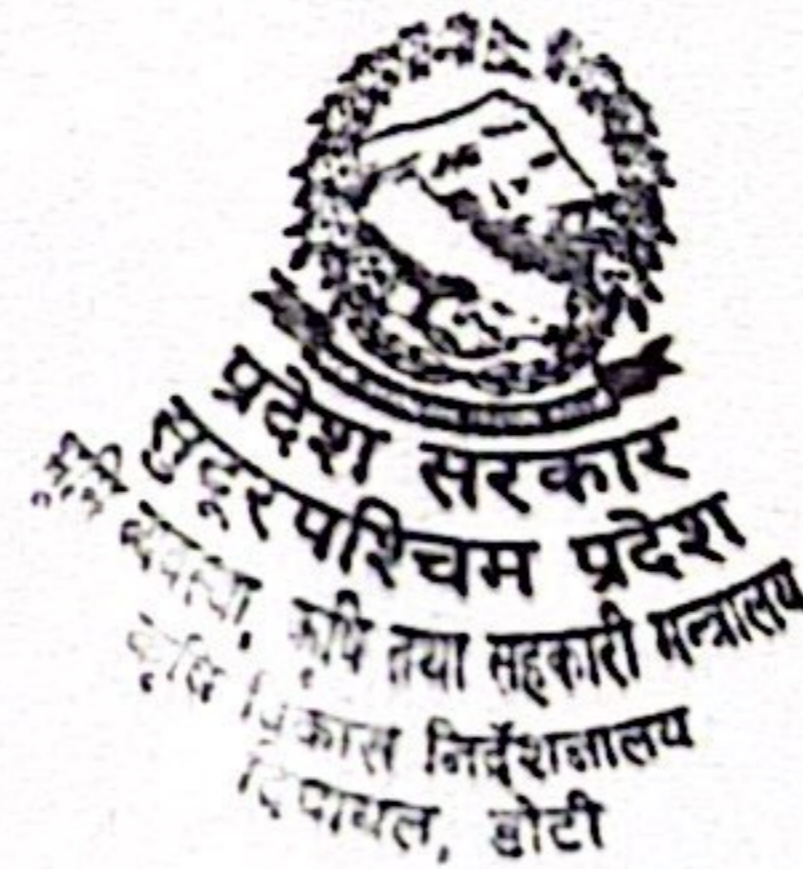 प्रदेश सरकार
सुदूरपश्चिम प्रदेश
भूमि व्यवस्था, कृषि तथा सहकारी मन्त्रालय
कृषि विकास निर्देशनालय
दिपायल, डोटी